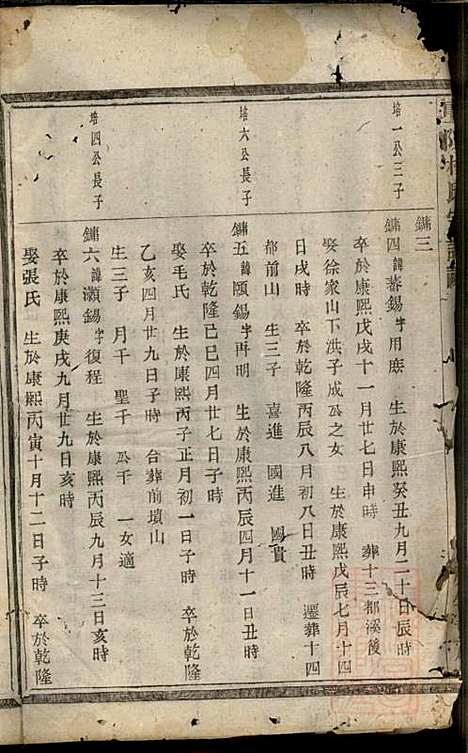 培一公三子
鏞三
鏞四 諱蕃錫 字用庶 生於康熙癸丑九月二十日辰時
卒於康熙戊戌十一月廿七日申時 葬十三都溪後
娶徐家山下洪子成公之女 生於康熙戊辰七月十四
日戌時 卒於乾隆丙辰八月初八日丑時 遷葬十四
都前山 生三子 喜進 國進 國貴
培六公長子
鏞五 諱頤錫 字再明 生於康熙丙辰四月十一日丑時
卒於乾隆己巳四月廿七日子時
娶毛氏 生於康熙丙子正月初一日子時 卒於乾隆
乙亥四月廿九日子時 合葬前墳山
生三子 月千 聖千 公千 一女適
培四公長子
鏞六 諱灝錫 字復程 生於康熙丙辰九月十三日亥時
卒於康熙庚戌九月廿九日亥時
娶張氏 生於康熙丙寅十月十二日子時 卒於乾隆